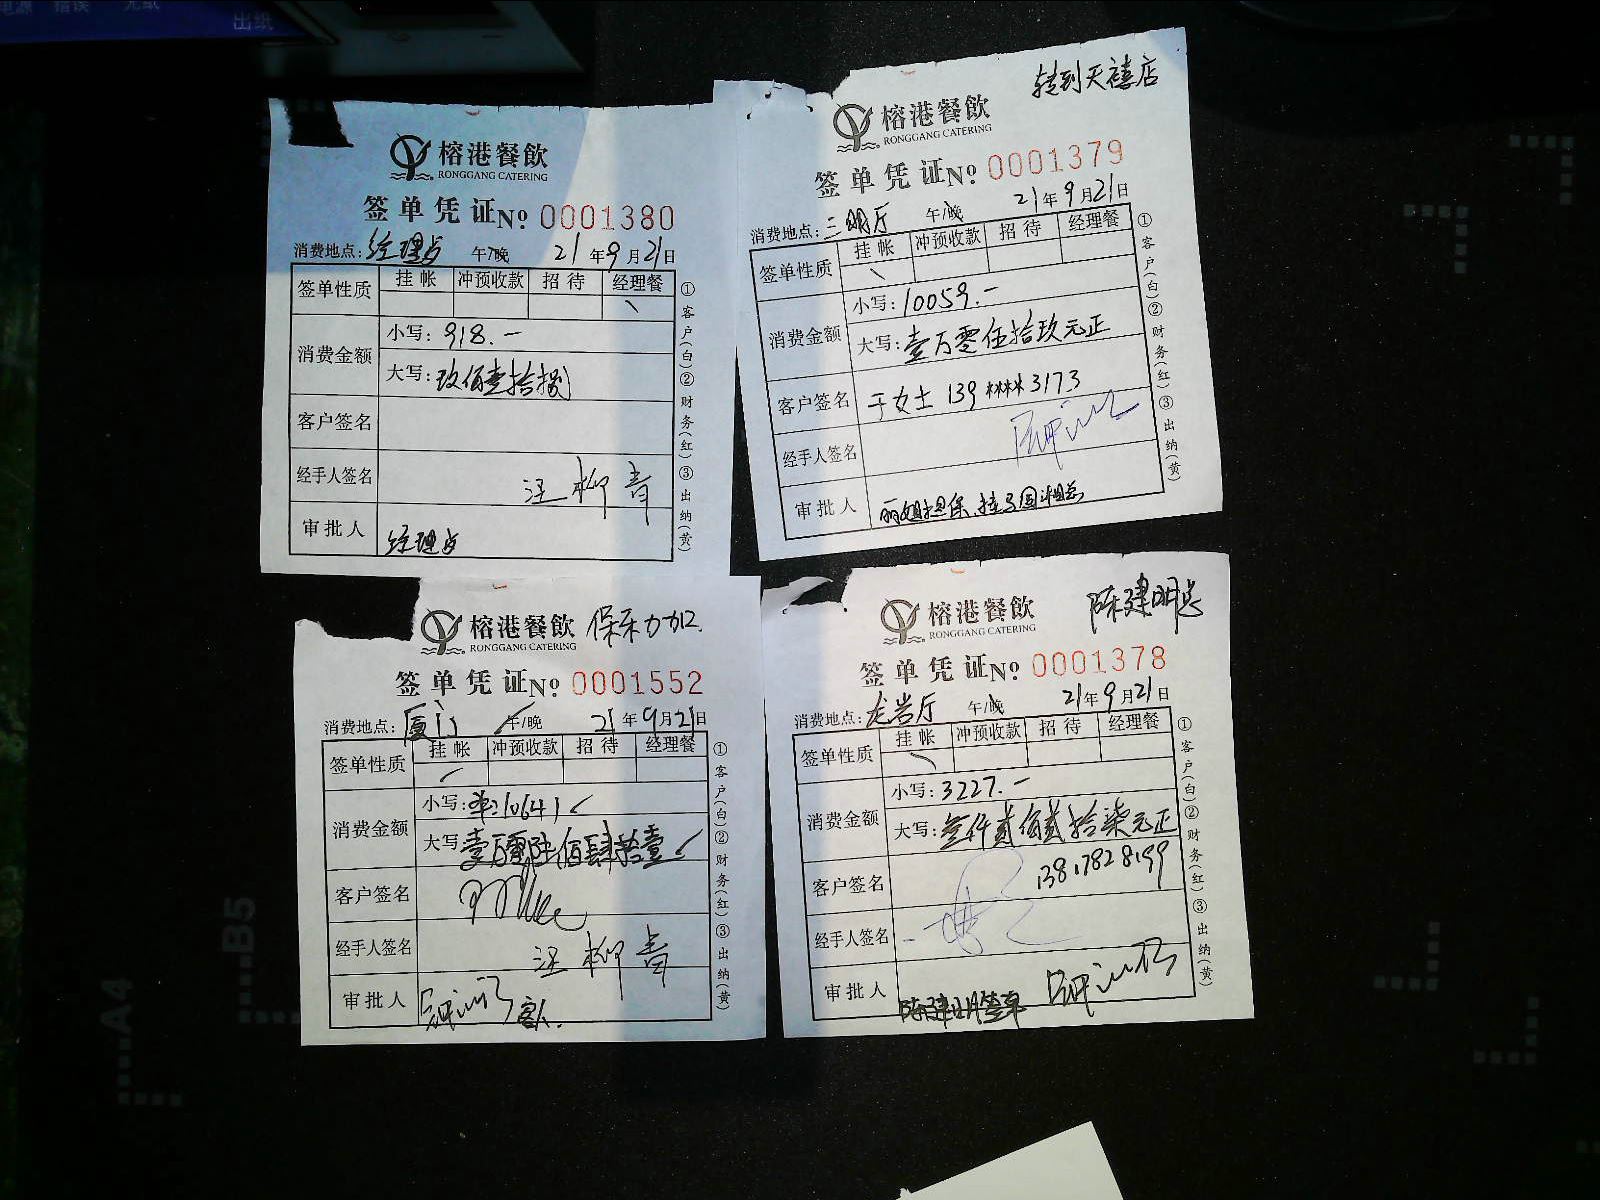 电源 错误 无纸
出纸
榕港餐飲
RONGGANG CATERING
签单凭证 № 0001380
消费地点: 经理 午/晚 21年9月21日
签单性质 挂帐 冲预收款 招待 经理餐
消费金额 小写: 918.—
大写: 玖佰壹拾捌
客户签名
经手人签名 汪柳青
审批人 经理
①客户(白)②财务(红)③出纳(黄)
转到天禧店
榕港餐飲
RONGGANG CATERING
签单凭证 № 0001379
消费地点: 三明厅 午/晚 21年9月21日
签单性质 挂帐 冲预收款 招待 经理餐
消费金额 小写: 10059.—
大写: 壹万零伍拾玖元正
客户签名 于女士 139 **** 3173
经手人签名
审批人 丽姐担保
①客户(白)②财务(红)③出纳(黄)
榕港餐飲 保禾力加
RONGGANG CATERING
签单凭证 № 0001552
消费地点: 厦门 午/晚 21年9月21日
签单性质 挂帐 冲预收款 招待 经理餐
消费金额 小写: 10641
大写: 壹万零陆佰肆拾壹
客户签名
经手人签名 汪柳青
审批人
①客户(白)②财务(红)③出纳(黄)
陈建明总
榕港餐飲
RONGGANG CATERING
签单凭证 № 0001378
消费地点: 龙岩厅 午/晚 21年9月21日
签单性质 挂帐 冲预收款 招待 经理餐
消费金额 小写: 3227.—
大写: 叁仟贰佰贰拾柒元正
客户签名 13817828199
经手人签名
审批人 陈建明签单
①客户(白)②财务(红)③出纳(黄)
B5
A4